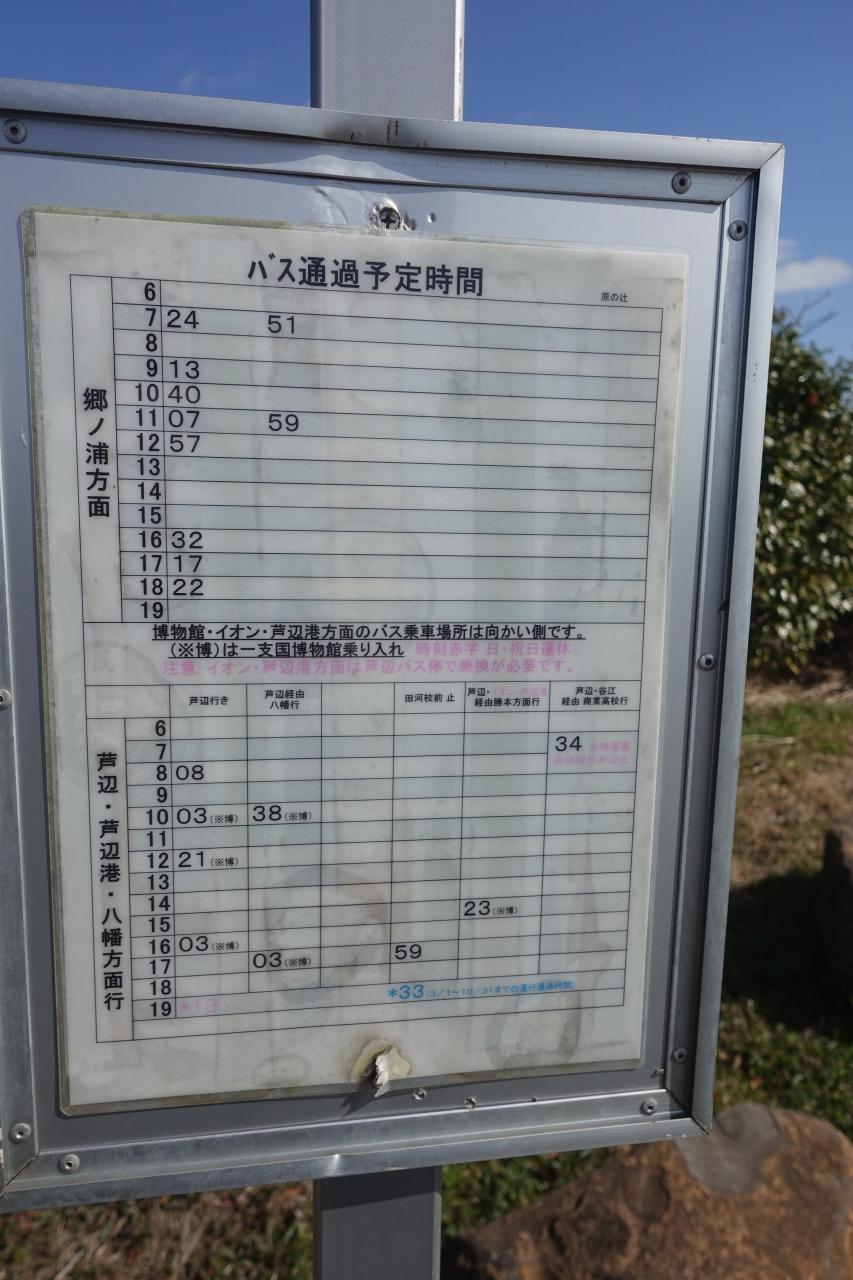 バス通過予定時間
原の辻
郷ノ浦方面
6
7 24 51
8
9 13
10 40
11 07 59
12 57
13
14
15
16 32
17 17
18 22
19
博物館・イオン・芦辺港方面のバス乗車場所は向かい側です。
(※博)は一支国博物館乗り入れ 時刻赤字 日・祝日運休
注意 イオン・芦辺港方面は芦辺バス停で乗換が必要です。
芦辺行き
芦辺経由
八幡行
田河校前 止
芦辺・イオン・芦辺港
経由勝本方面行
芦辺・谷江
経由 商業高校行
芦辺・芦辺港・八幡方面行
6
7 34
校休校日芦辺止
8 08
9
10 03(※博) 38(※博)
11
12 21(※博)
13
14 23(※博)
15
16 03(※博) 59
17 03(※博)
18 *33(3/1~10/31までの運行通過時間)
19 *13